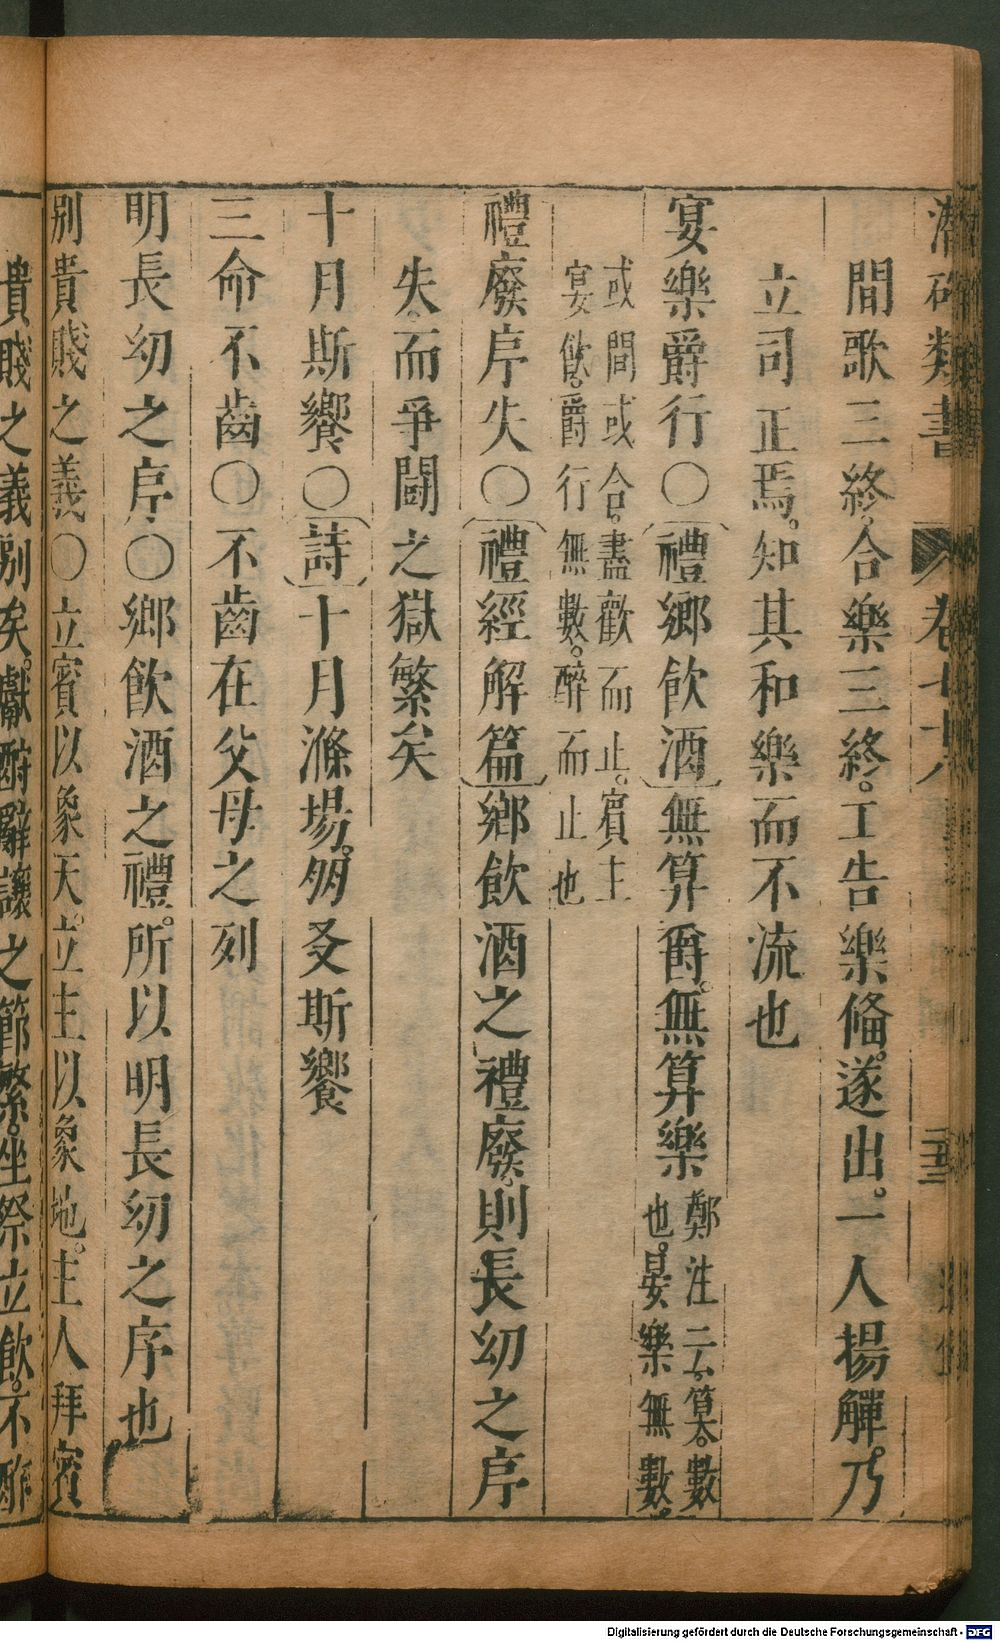 潛確類書 卷七十八
間歌三終合樂三終。工告樂偹。遂出。一人揚觶乃
立司正焉。知其和樂而不流也
宴樂爵行〇禮鄉飲酒無算爵。無算樂鄭注云。算。數也。宴樂無數。
或間或合。盡歡而止。賓主宴飲。爵行無數。醉而止也
禮廢序失〇禮經解篇鄉飲酒之禮廢。則長幼之序
失。而爭鬪之獄繁矣
十月斯饗〇詩十月滌場。朋㸚斯饗
三命不齒〇不齒在父母之列
明長幼之序〇鄉飲酒之禮。所以明長幼之序也
別貴賤之義〇立賓以象天。立主以象地。主人拜賓
貴賤之義別矣。獻酬辭讓之節繁。坐祭立飲。不酢
Digitalisierung gefördert durch die Deutsche Forschungsgemeinschaft - DFG